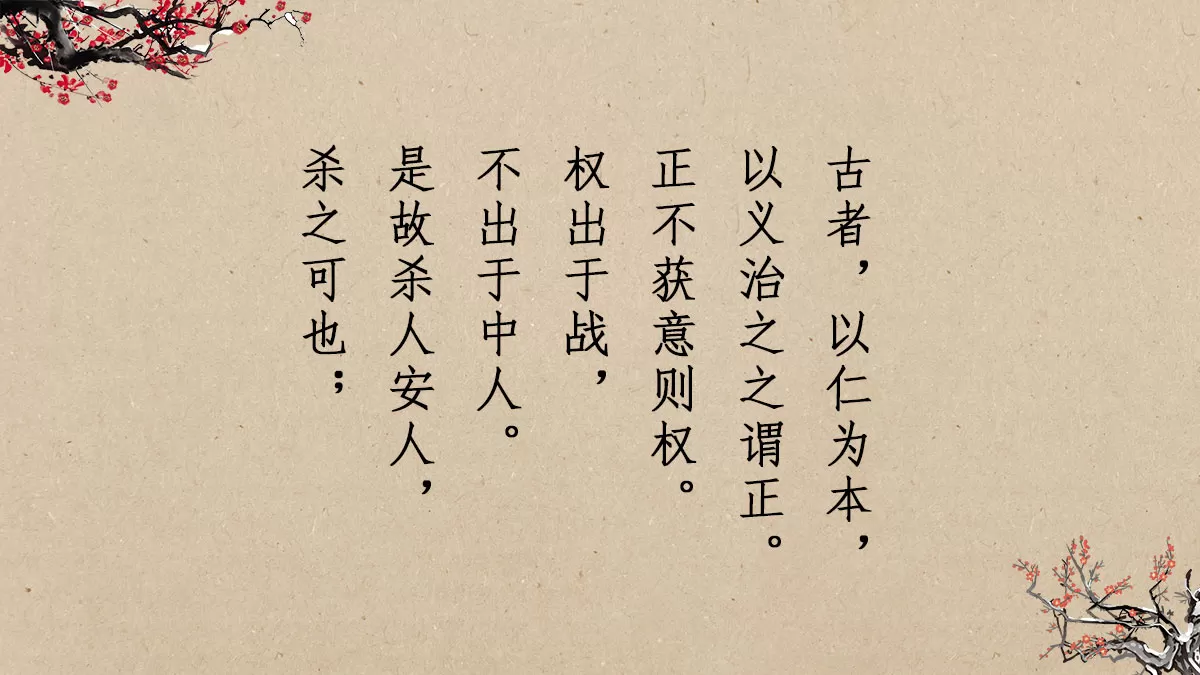 古者，以仁为本，
以义治之之谓正。
正不获意则权。
权出于战，
不出于中人。
是故杀人安人，
杀之可也；